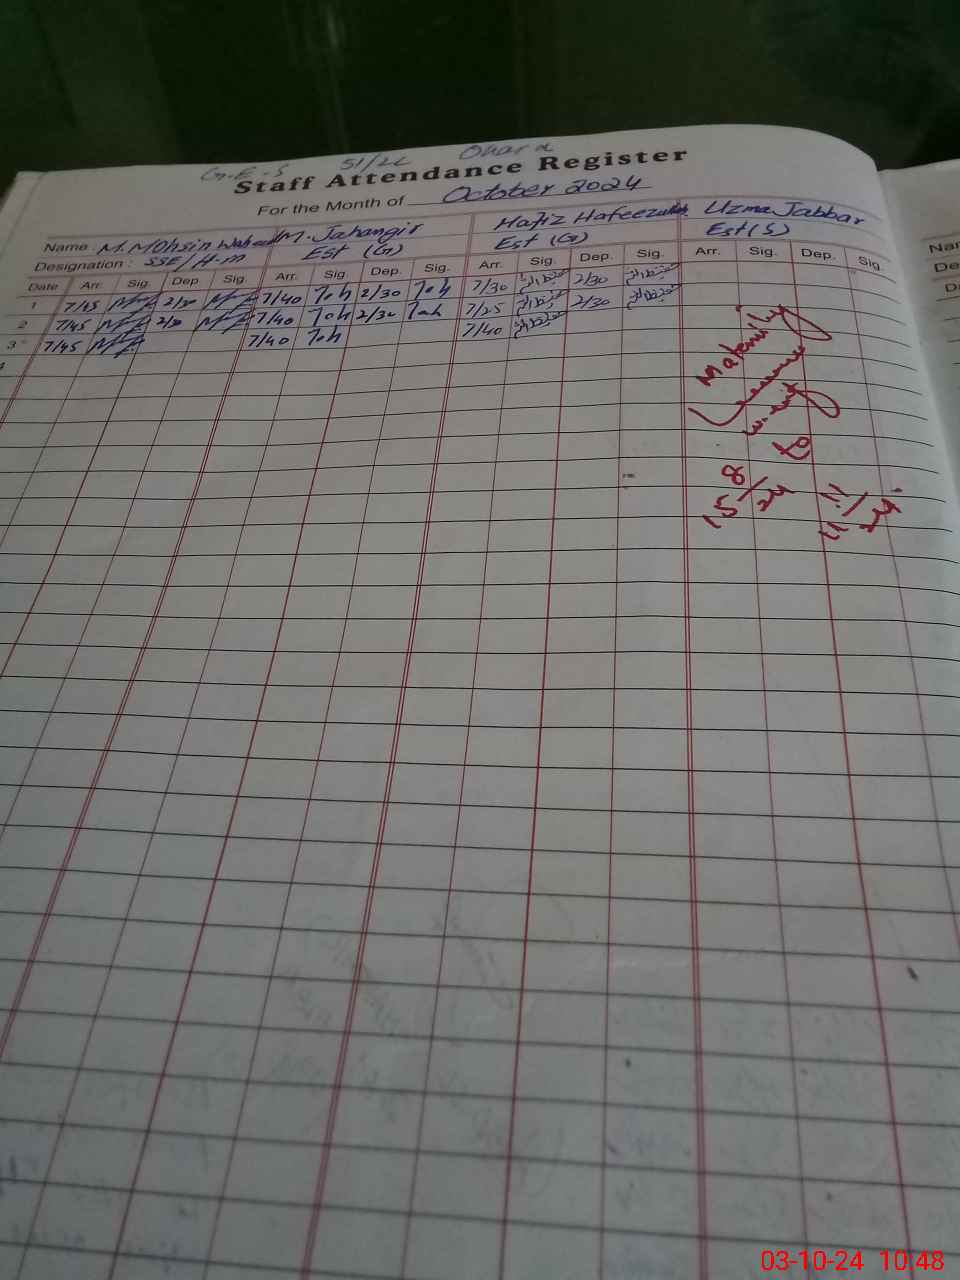 G.E.S 51/2L Okara
Staff Attendance Register
For the Month of October 2024
Name : M. Mohsin Waheed M. Jahangir Hafiz Hafeezullah Uzma Jabbar
Designation : SSE/H.m Est (G) Est (G) Est (S)
Date Arr. Sig. Dep Sig. Arr. Sig. Dep. Sig. Arr. Sig. Dep. Sig. Arr. Sig. Dep. Sig.
1 7/45 2/30 7/40 2/30 7/30 2/30
2 7/45 2/30 7/40 2/30 7/25 2/30
3 7/45 7/40 7/40
4
Maternity
Leave
15/8/24
11/11/24
Nar
De
D
03-10-24 10:48